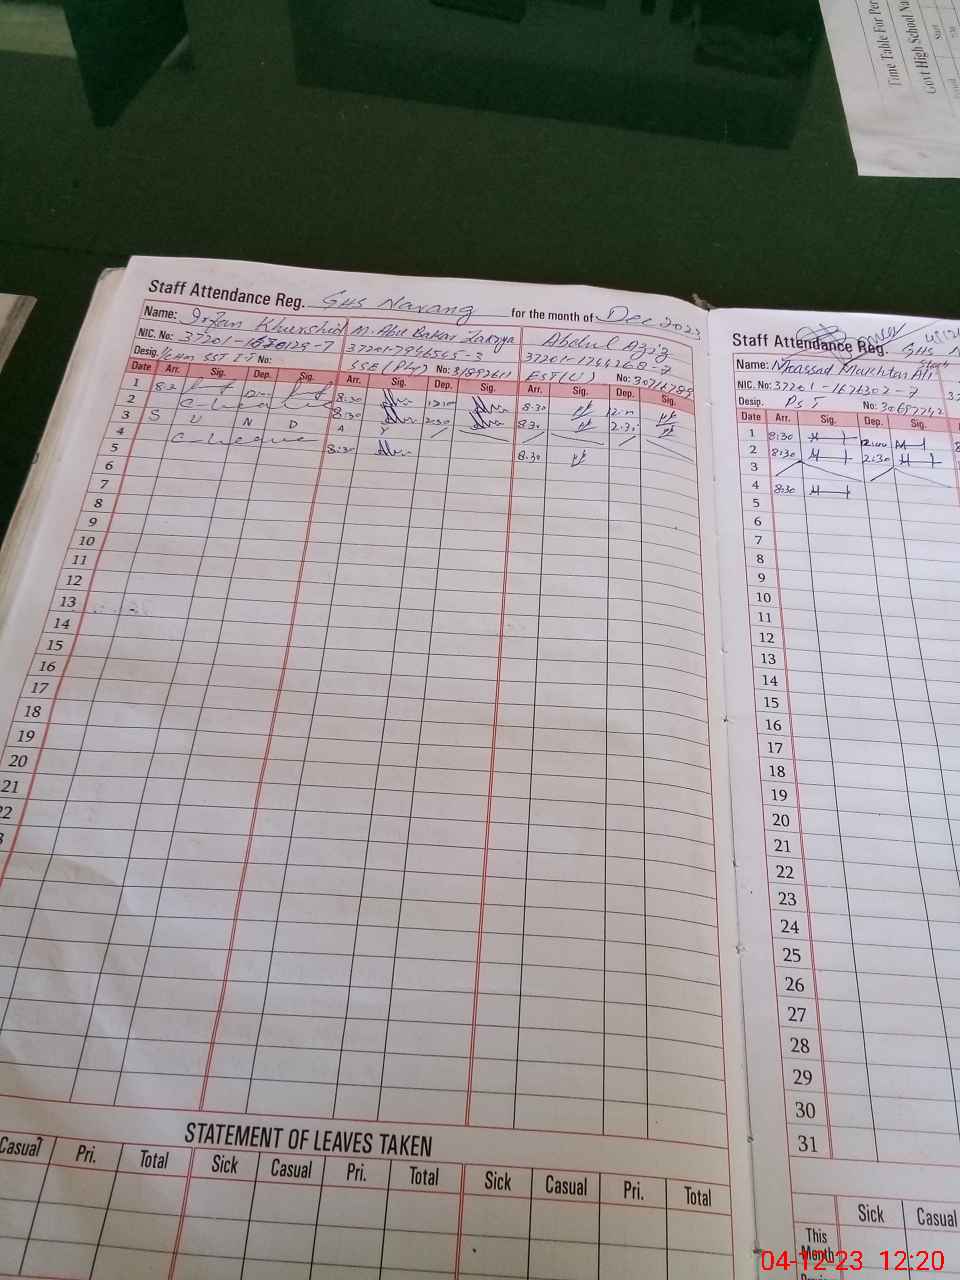 Time Table For Per
Govt High School Na
Start
Staff Attendance Reg. GHS Narang for the month of Dec 2023
Name: Irfan Khurshid M. Abu Bakar Zakriya Abdul Aziz
NIC. No: 37201-1670129-7 37201-7946545-3 37201-1744268-7
Desig. SST No: SSE (Phy) No: 31892611 EST(U) No: 30716789
Date Arr. Sig. Dep. Sig. Arr. Sig. Dep. Sig. Arr. Sig. Dep. Sig.
1 8:30 8:30
2 8:30 2:30 8:30 2:30
3 S U N D A Y
4 8:30 8:30
5
6
7
8
9
10
11
12
13
14
15
16
17
18
19
20
21
22
STATEMENT OF LEAVES TAKEN
Casual Pri. Total Sick Casual Pri. Total Sick Casual Pri. Total
Staff Attendance Reg. GHS
Name: Mukhtar Ali
NIC. No: 37201-1676302-7
Desig. PST No: 30687742
Date Arr. Sig. Dep. Sig.
1 8:30 12:00
2 8:30 2:30
3
4 8:30
5
6
7
8
9
10
11
12
13
14
15
16
17
18
19
20
21
22
23
24
25
26
27
28
29
30
31
Sick Casual
This
Month
04-12-23 12:20